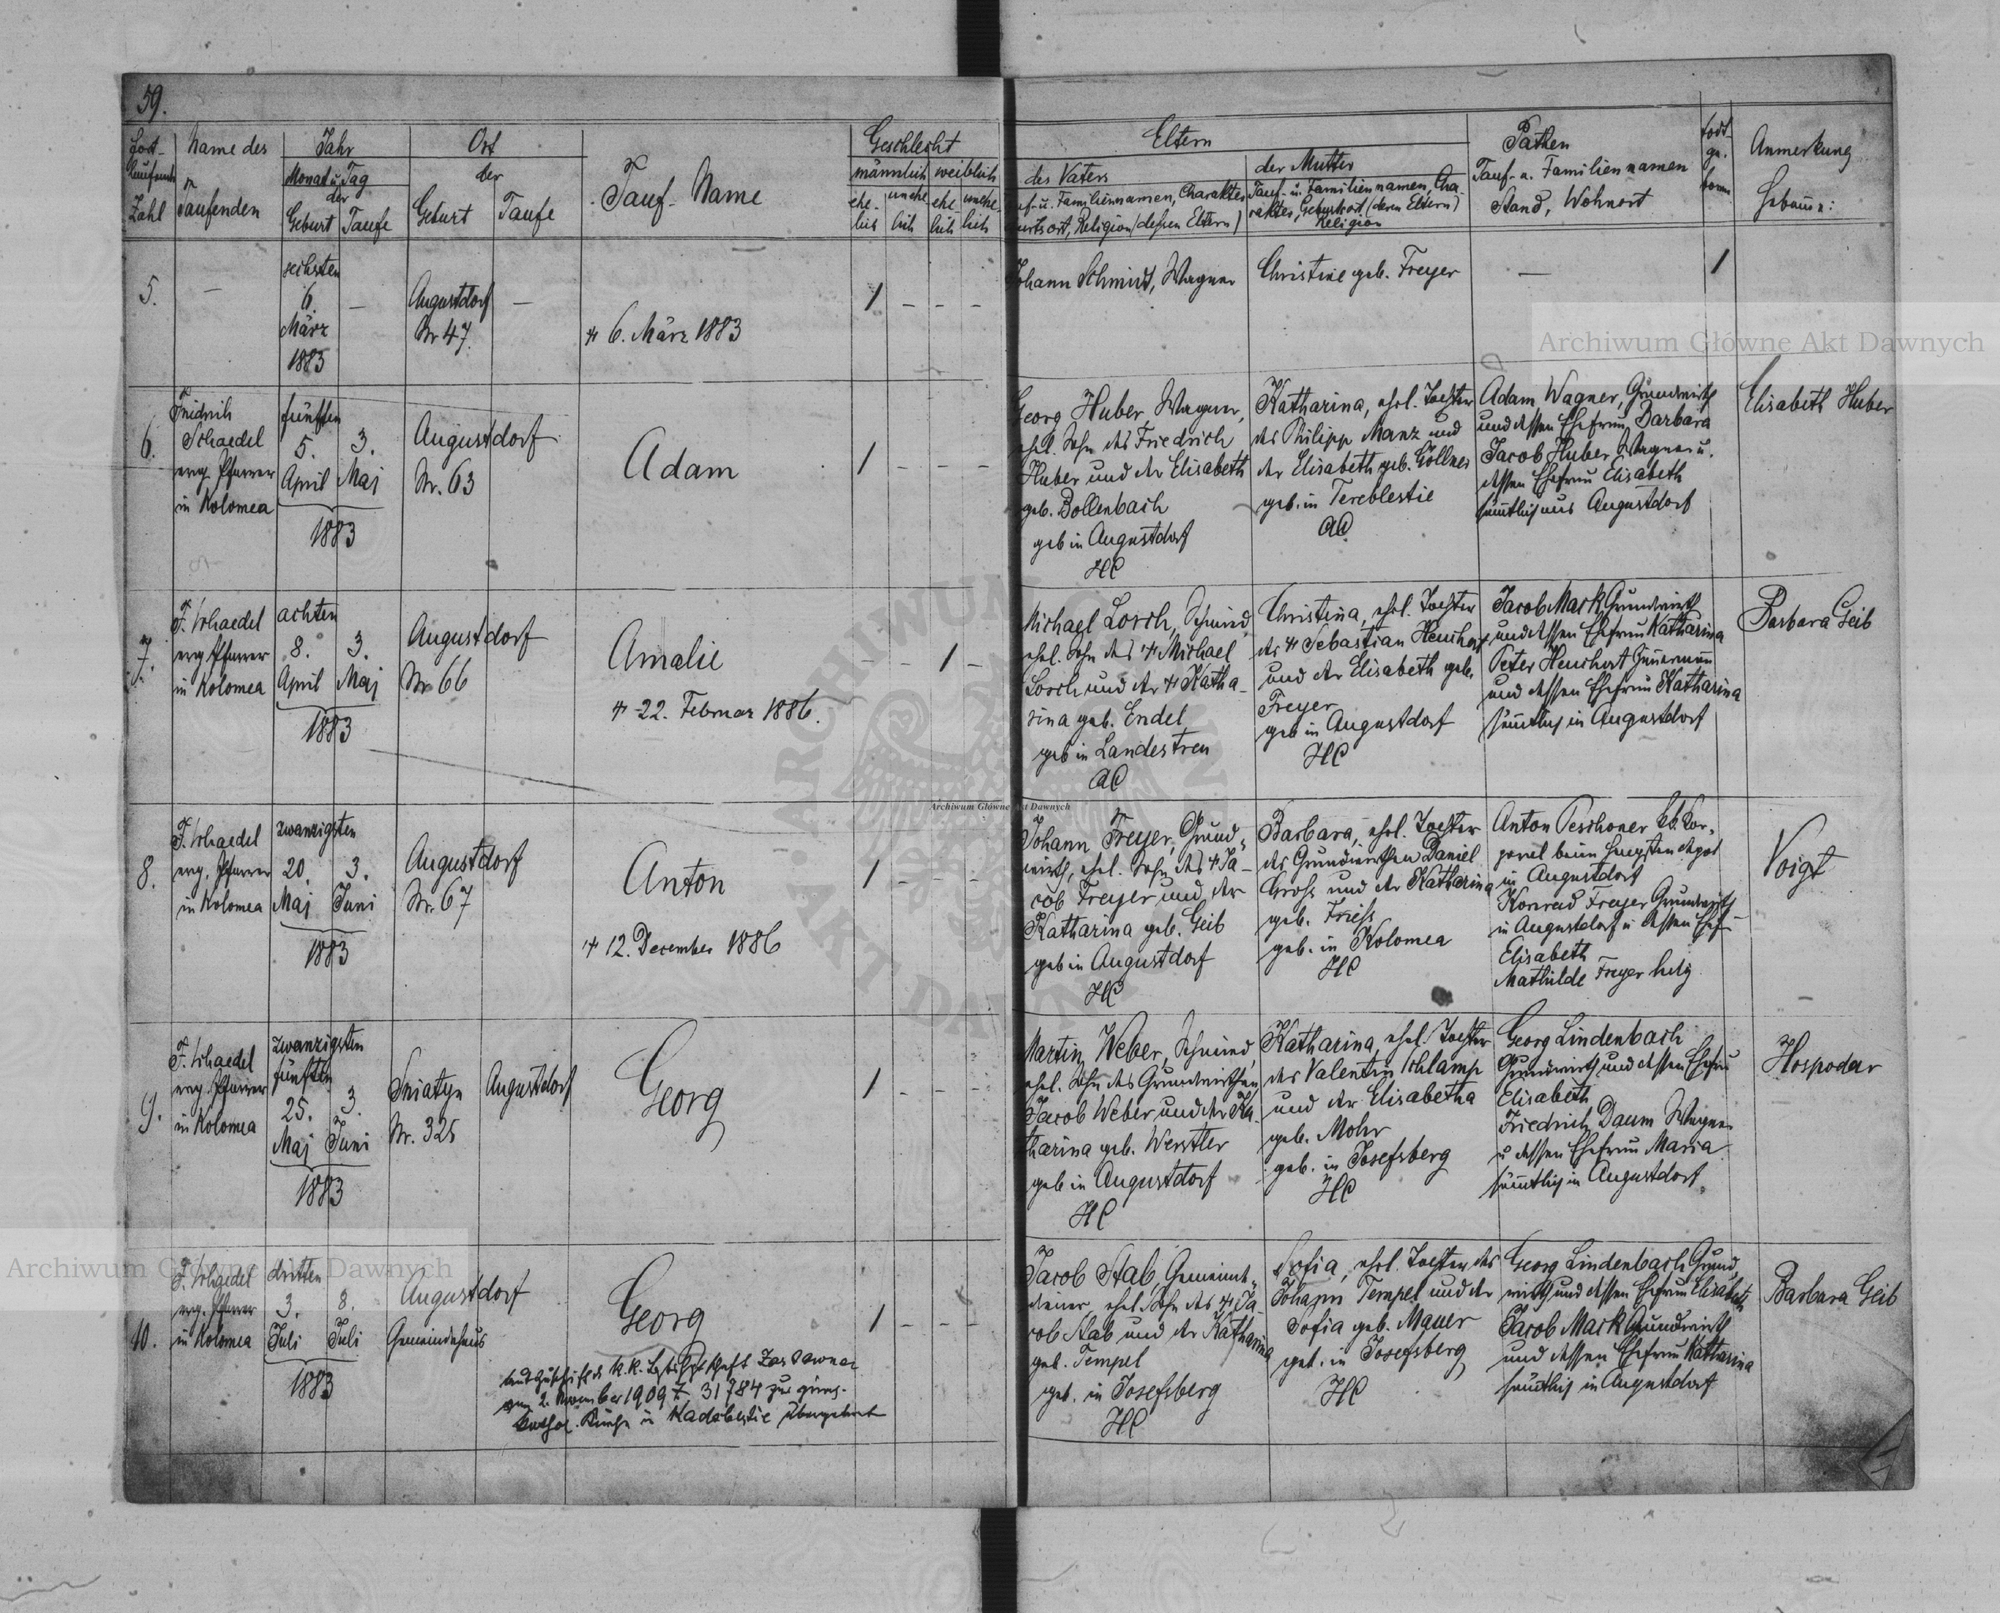 59.
Name des
Taufenden
Zahl
Jahr
Monat u. Tag
der
Geburt
Taufe
Ort
der
Geburt
Taufe
Tauf-Name
Geschlecht
männlich
weiblich
ehe-
lich
unehe-
lich
ehe-
lich
unehe-
lich
Eltern
des Vaters
Familiennamen, Charakter
Religion (dessen Eltern)
der Mutter
Tauf- u. Familiennamen, Cha-
rakter, Geburtsort (deren Eltern)
Religion
Pathen
Tauf- u. Familiennamen
Stand, Wohnort
todt
ge-
boren
Anmerkung
Hebamme:
5.
—
sechsten
6.
März
1883
—
Augustdorf
Nr 47.
—
† 6. März 1883
1 - - -
Johann Schmidt, Wagner
Christine geb. Freyer
—
1
6.
Friedrich
Schaedel
evg. Pfarrer
in Kolomea
fünften
5. 3.
April Maj
1883
Augustdorf
Nr. 63
Adam
1 - - -
Georg Huber, Wagner,
ehel. Sohn des Friedrich
Huber und der Elisabeth
geb. Bollenbach
geb in Augustdorf
HC
Katharina, ehel. Tochter
des Philipp Manz und
der Elisabeth geb. Göllner
geb. in Tereblestie
AC
Adam Wagner, Grundwirth
und dessen Ehefrau Barbara
Jacob Huber Wagner u.
dessen Ehefrau Elisabeth
sämtlich aus Augustdorf
Elisabeth Huber
7.
F. Schaedel
evg. Pfarrer
in Kolomea
achten
8. 3.
April Maj
1883
Augustdorf
Nr. 66
Amalie
† 22. Februar 1886.
- - 1 -
Michael Losch, Schmied,
ehel. Sohn des † Michael
Losch und der † Katha-
rina geb. Endel
geb in Landestreu
AC
Christina, ehel. Tochter
des † Sebastian Henschort
und der Elisabeth geb.
Freyer
geb in Augustdorf
HC
Jacob Mark Grundwirth
und dessen Ehefrau Katharina
Peter Henschort
und dessen Ehefrau Katharina
sämtlich in Augustdorf
Barbara Geib
8.
F. Schaedel
evg. Pfarrer
in Kolomea
zwanzigsten
20. 3.
Maj Juni
1883
Augustdorf
Nr. 67
Anton
† 12. December 1886
1 - - -
Johann Freyer, Grund-
wirth, ehel. Sohn des † Ja-
cob Freyer und der
Katharina geb. Geib
geb in Augustdorf
HC
Barbara, ehel. Tochter
des Grundwirthen Daniel
Gross und der Katharina
geb. Friess
geb. in Kolomea
HC
Anton Peschoner kk. Kor-
poral beim Hengsten depot
in Augustdorf
Konrad Freyer Grundwirth
in Augustdorf u dessen Ehef-
Elisabeth
Mathilde Freyer ledig
Voigt
9.
F. Schaedel
evg. Pfarrer
in Kolomea
zwanzigsten
fünften
25. 3.
Maj Juni
1883
Sniatyn
Nr. 325
Augustdorf
Georg
1 - - -
Martin Weber, Schmied,
ehel. Sohn des Grundwirthen
Jacob Weber und der Ka-
tharina geb. Werstler
geb in Augustdorf
HC
Katharina, ehel. Tochter
des Valentin Schlamp
und der Elisabetha
geb. Mohr
geb. in Josefsberg
HC
Georg Lindenbach
Grundwirth und dessen Ehefrau
Elisabeth
Friedrich Daum Wagner
u dessen Ehefrau Maria
sämtlich in Augustdorf.
Hospodar
10.
F. Schaedel
evg. Pfarrer
in Kolomea
dritten
3. 8.
Juli Juli
1883
Augustdorf
Gemeindehaus
Georg
laut Zuschrift der k. k. Bezirkshptmschaft Zastawna
vom 2. November 1909 Z. 31784 zur griech.
kathol. Kirche in Kadobestie übergetreten
1 - - -
Jacob Stab, Gemeinde-
diener, ehel. Sohn des † Ja-
cob Stab und der Katharina
geb. Tempel
geb. in Josefsberg
HC
Sofia, ehel. Tochter des
Johann Tempel und der
Sofia geb. Mauer
geb. in Josefsberg
HC
Georg Lindenbach Grund-
wirth und dessen Ehefrau Elisabeth
Jacob Mark Grundwirth
und dessen Ehefrau Katharina
sämtlich in Augustdorf
Barbara Geib
Archiwum Główne Akt Dawnych
Archiwum Główne Akt Dawnych
Archiwum Główne Akt Dawnych